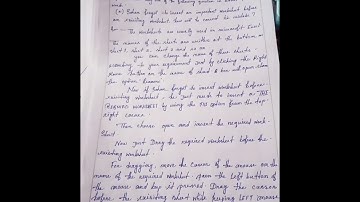 any one of the following question is
word.
(a) Suham forgot to insert an important worksheet before
an existing worksheet. How will he insert the worksheet?
The worksheets are mostly used in microsoft Excel
The names of the sheet are written at the bottom as
sheet 1, sheet 2, sheet 3 and so on
you can change the name of these sheets
according to your requirement and by clicking the Right
Mouse button on the name of sheet & then will open
the option Rename
Now if Suham forget to insert worksheet before
existing worksheet, he just needs to insert a "THE
REQUIRED WORKSHEET" by using the option from the top
right corner.
Then choose open and insert the required work
sheet
Now just Drag the required worksheet before the
existing worksheet
For dragging, move the cursor of the mouse on the
name of the required worksheet. press the Left button of
the mouse and keep it pressed. Drag the cursor
before the existing sheet while keeping LEFT mouse